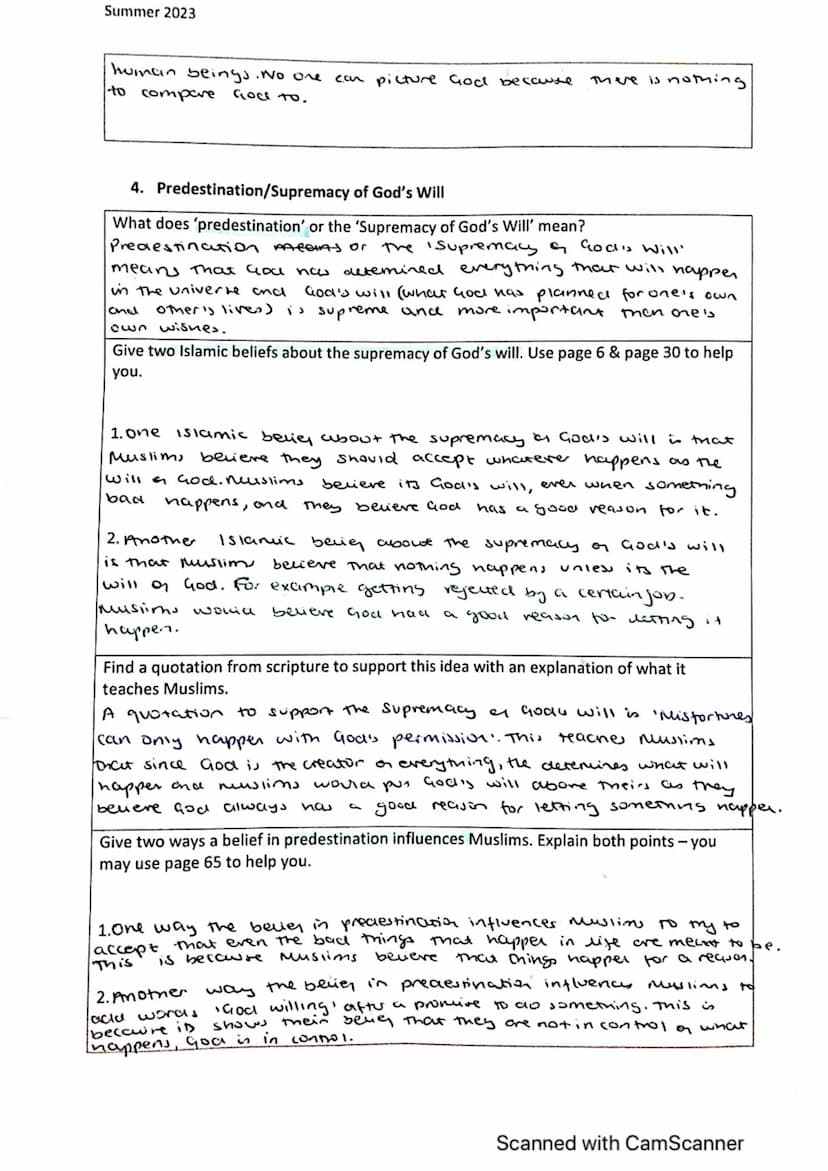 Summer 2023
human beings. No one can picture God because there is nothing
to compare God to.
4. Predestination/Supremacy of God's Will
What does 'predestination' or the 'Supremacy of God's Will' mean?
Predestination means or the 'Supremacy of God's Will'
means that God has determined everything that will happen
in the universe and God's will (what God has planned for one's own
and other's lives) is supreme and more important than one's
own wishes.
Give two Islamic beliefs about the supremacy of God's will. Use page 6 & page 30 to help
you.
1. One Islamic belief about the supremacy of God's will is that
Muslims believe they should accept whatever happens as the
will of God. Muslims believe its God's will, even when something
bad happens, and they believe God has a good reason for it.
2. Another Islamic belief about the supremacy of God's will
is that Muslims believe that nothing happens unless its the
will of God. For example getting rejected by a certain job.
Muslims would believe God had a good reason for letting it
happen.
Find a quotation from scripture to support this idea with an explanation of what it
teaches Muslims.
A quotation to support the Supremacy of Gods will is 'Misfortunes
can only happen with God's permission'. This teaches Muslims
that since God is the creator of everything, he determines what will
happen and Muslims would put God's will above theirs as they
believe God always has a good reason for letting something happen.
Give two ways a belief in predestination influences Muslims. Explain both points – you
may use page 65 to help you.
1. One way the belief in predestination influences Muslims to try to
accept that even the bad things that happen in life are meant to be.
This is because Muslims believe that things happen for a reason.
2. Another way the belief in predestination influences Muslims to
add words 'God willing' after a promise to do something. This is
because it shows their belief that they are not in control of what
happens, God is in control.
Scanned with CamScanner